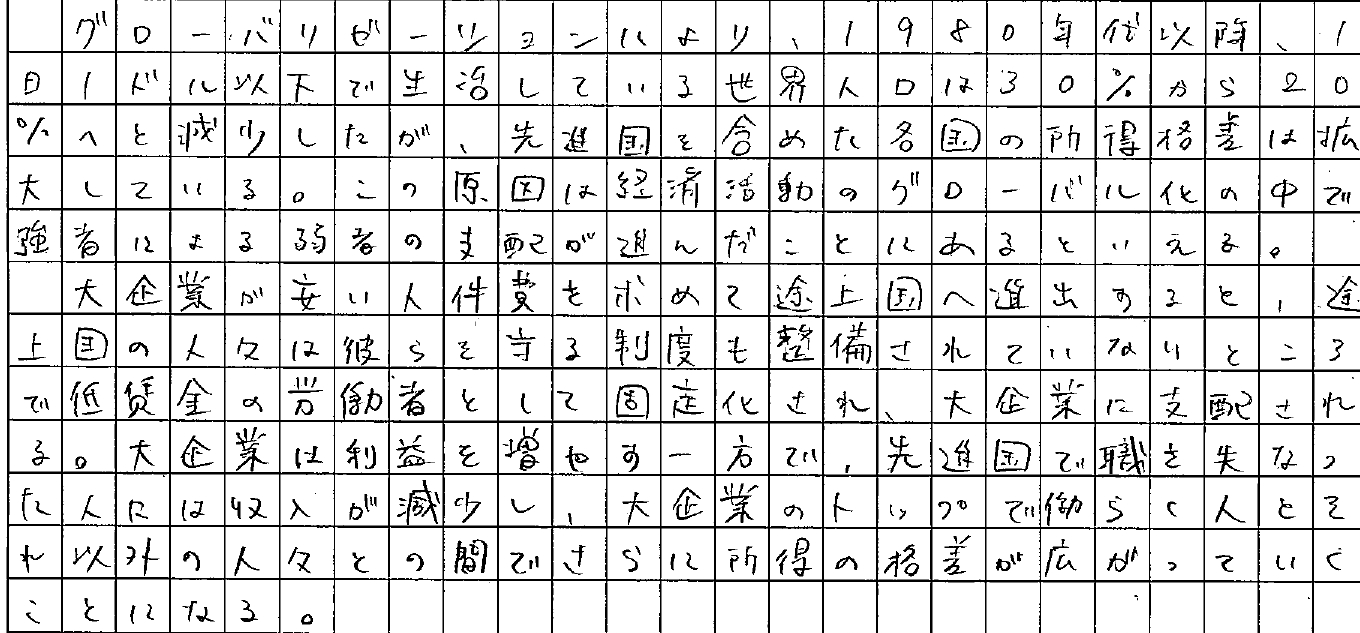 グローバリゼーションにより、1980年代以降、1
日1ドル以下で生活している世界人口は30%から20
%へと減少したが、先進国を含めた各国の所得格差は拡
大している。この原因は経済活動のグローバル化の中で
強者による弱者の支配が進んだことにあるといえる。
大企業が安い人件費を求めて途上国へ進出すると,途
上国の人々は彼らを守る制度も整備されていないところ
で低賃金の労働者として固定化され、大企業に支配され
る。大企業は利益を増やす一方で,先進国で職を失なっ
た人には収入が減少し,大企業のトップで働らく人とそ
れ以外の人々との間でさらに所得の格差が広がっていく
ことになる。